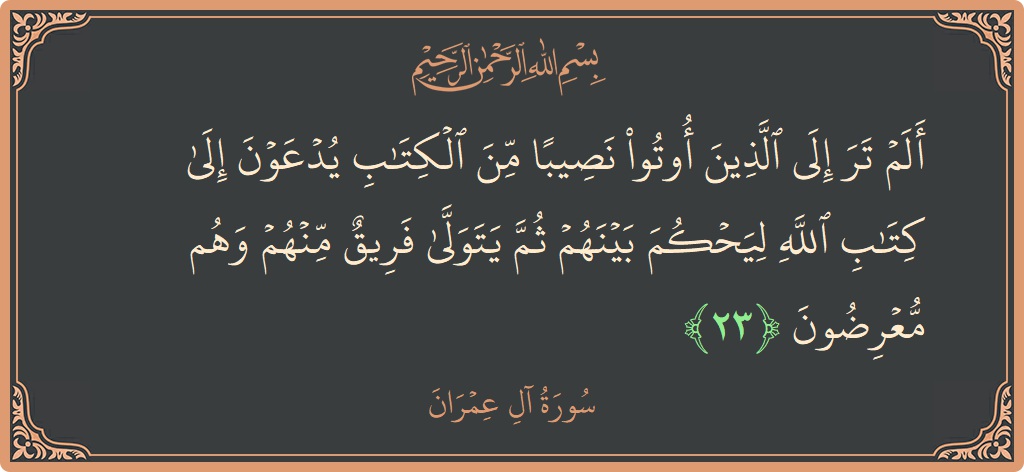 بِسْمِ اللَّهِ الرَّحْمَٰنِ الرَّحِيمِ
أَلَمۡ تَرَ إِلَى ٱلَّذِينَ أُوتُواْ نَصِيبٗا مِّنَ ٱلۡكِتَٰبِ يُدۡعَوۡنَ إِلَىٰ
كِتَٰبِ ٱللَّهِ لِيَحۡكُمَ بَيۡنَهُمۡ ثُمَّ يَتَوَلَّىٰ فَرِيقٞ مِّنۡهُمۡ وَهُم
مُّعۡرِضُونَ ﴿٢٣﴾
سُورَةُ آلِ عِمۡرَانَ